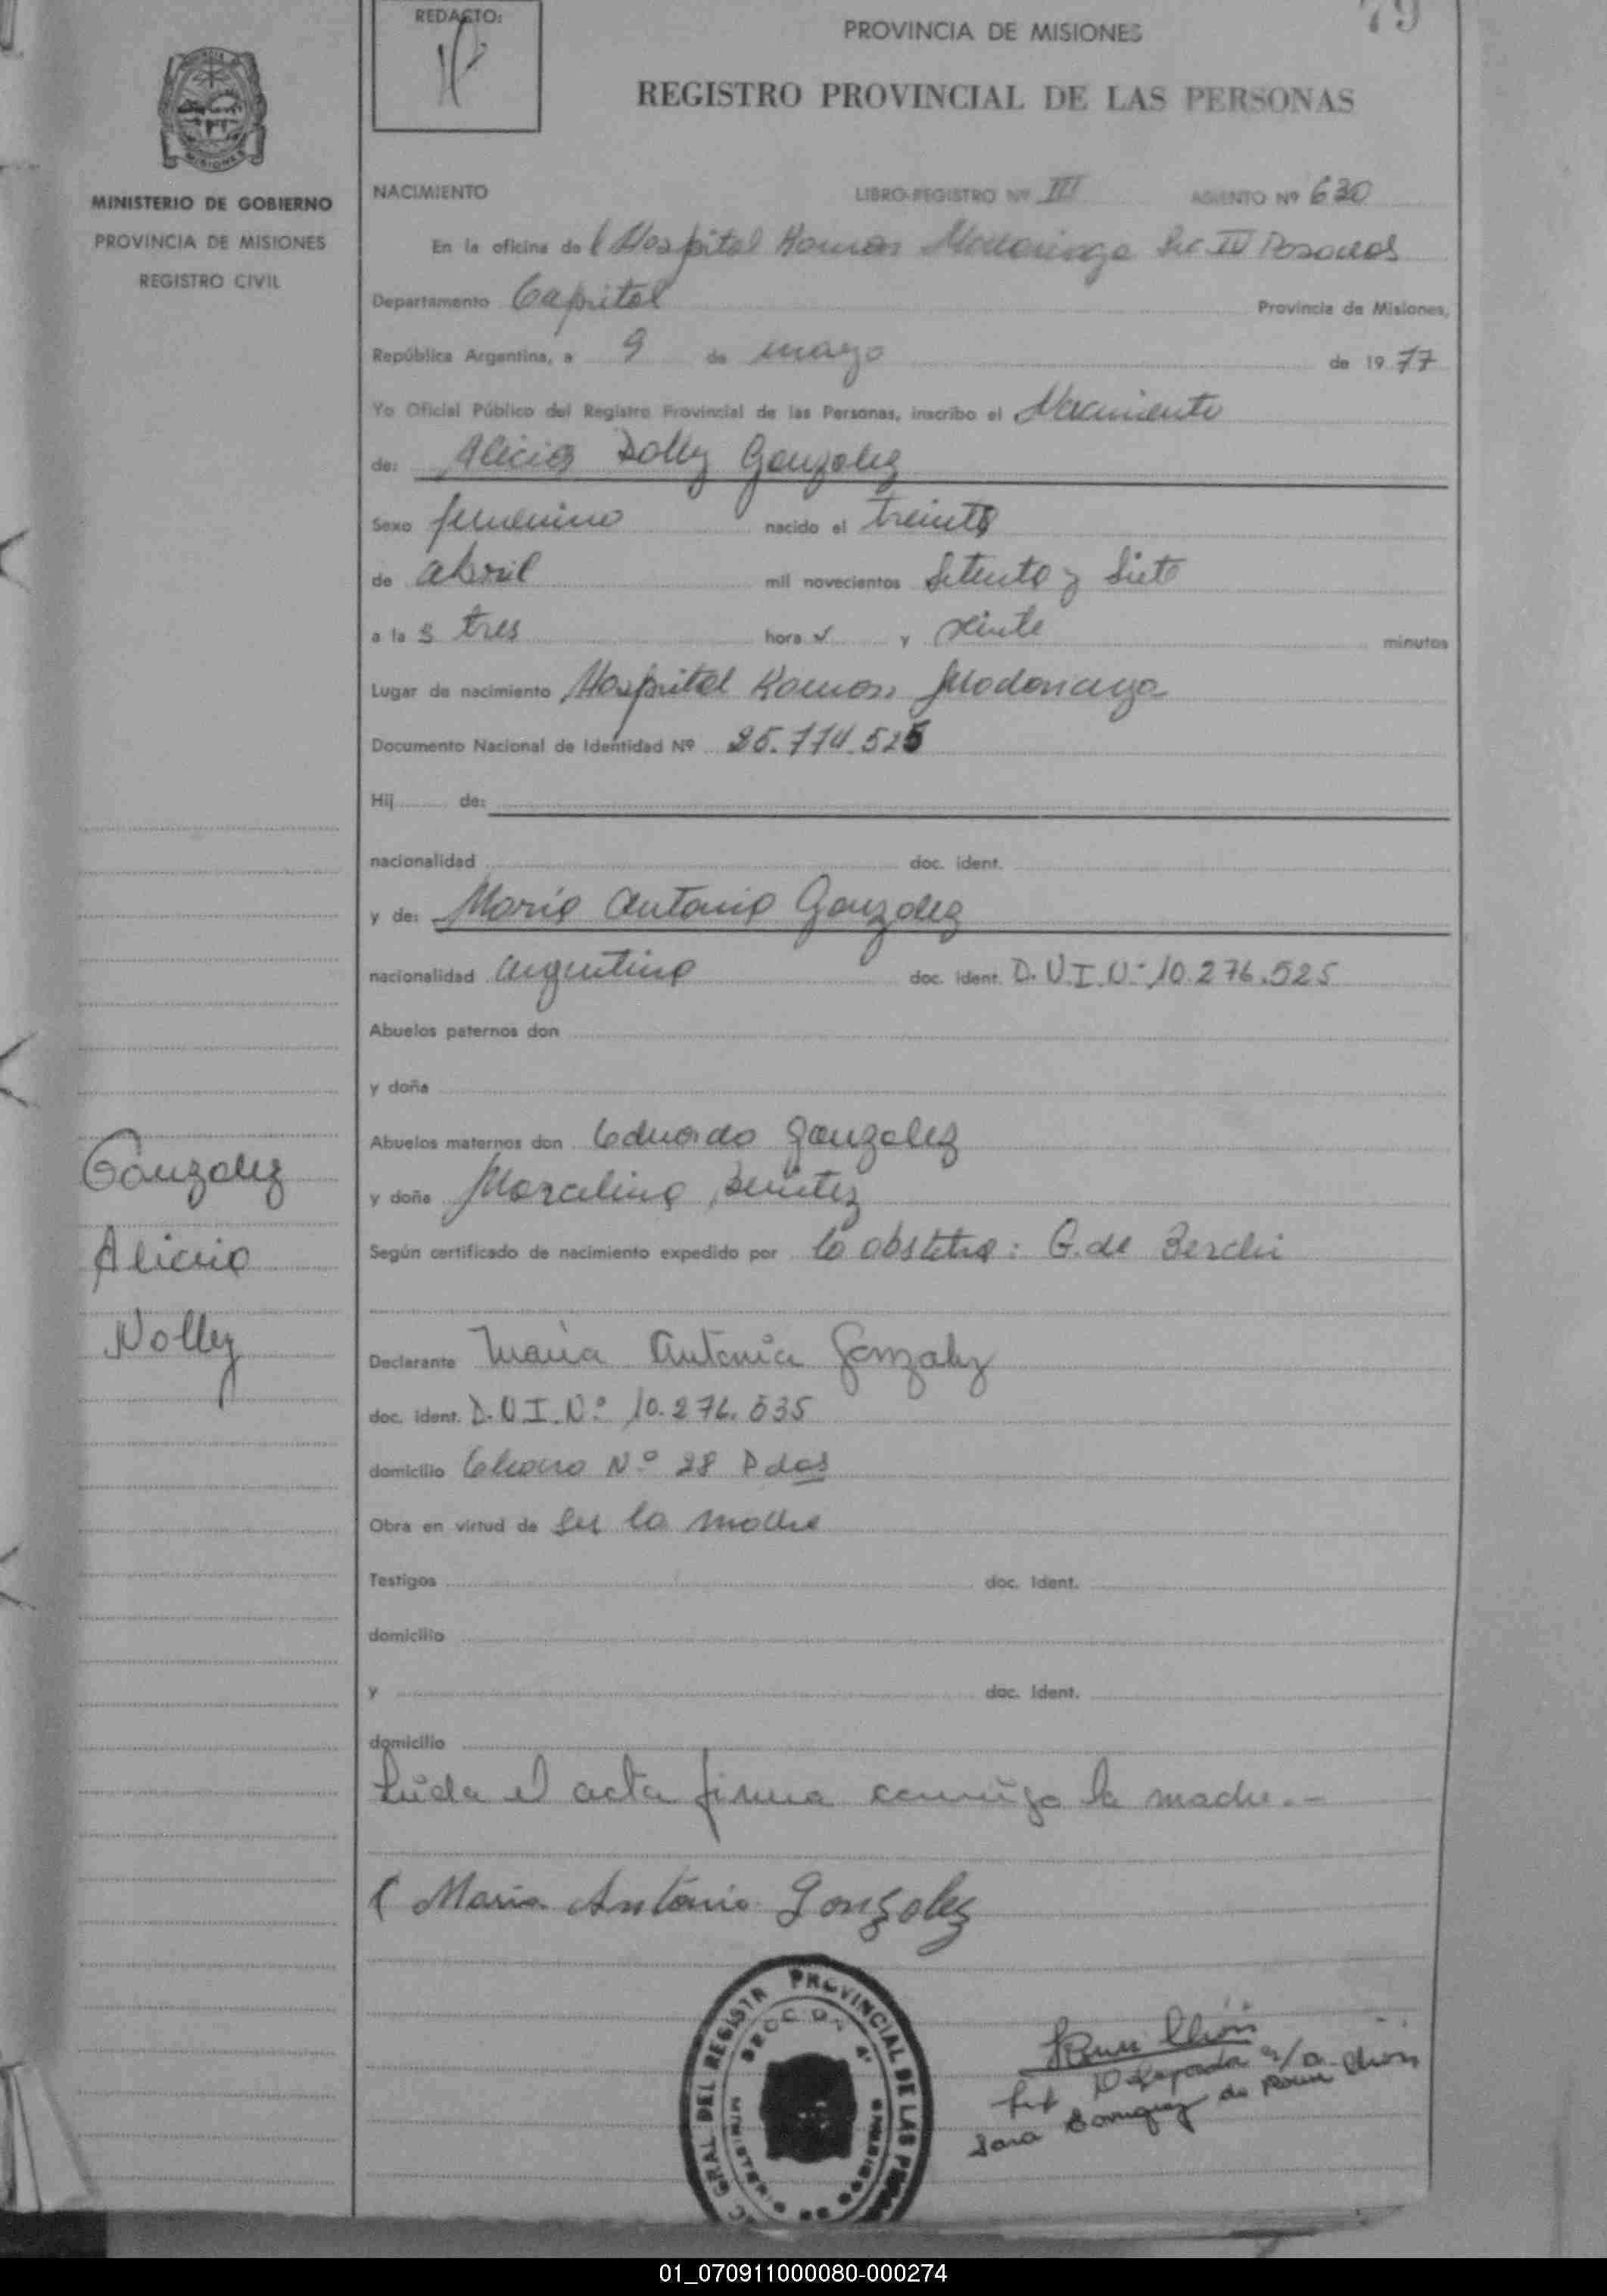 79
REDACTO:
PROVINCIA DE MISIONES
REGISTRO PROVINCIAL DE LAS PERSONAS
MISIONES
MINISTERIO DE GOBIERNO
PROVINCIA DE MISIONES
REGISTRO CIVIL
NACIMIENTO LIBRO-REGISTRO Nº III ASIENTO Nº 630
En la oficina de l Hospital Ramon Madariaga Sec IV Posadas
Departamento Capital Provincia de Misiones,
República Argentina, a 9 de mayo de 1977
Yo Oficial Público del Registro Provincial de las Personas, inscribo el Nacimiento
de: Alicia Dolly Gonzalez
Sexo femenino nacido el treinta
de abril mil novecientos Setenta y Siete
a la s tres hora s y veinte minutos
Lugar de nacimiento Hospital Ramon Madariaga
Documento Nacional de Identidad Nº 25.774.525
Hij de:
nacionalidad doc. ident.
y de: María Antonia Gonzalez
nacionalidad argentina doc. ident. D.N.I.N: 10.276.525
Abuelos paternos don
y doña
Abuelos maternos don Eduardo Gonzalez
y doña Marcelina Benitez
Según certificado de nacimiento expedido por la obstetra: G. de Berchi
Gonzalez
Alicia
Dolly
Declarante María Antonia Gonzalez
doc. ident. D.N.I.N.º 10.276.535
domicilio Chaco N.º 28 Pdas
Obra en virtud de ser la madre
Testigos doc. Ident.
domicilio
y doc. Ident.
domicilio
Leida el acta firma conmigo la madre.-
Maria Antonia Gonzalez
GRAL DEL REGISTR PROVINCIAL DE LAS P
MINISTERIO DE GOBIERNO
Delegada
Sara de
01_070911000080-000274